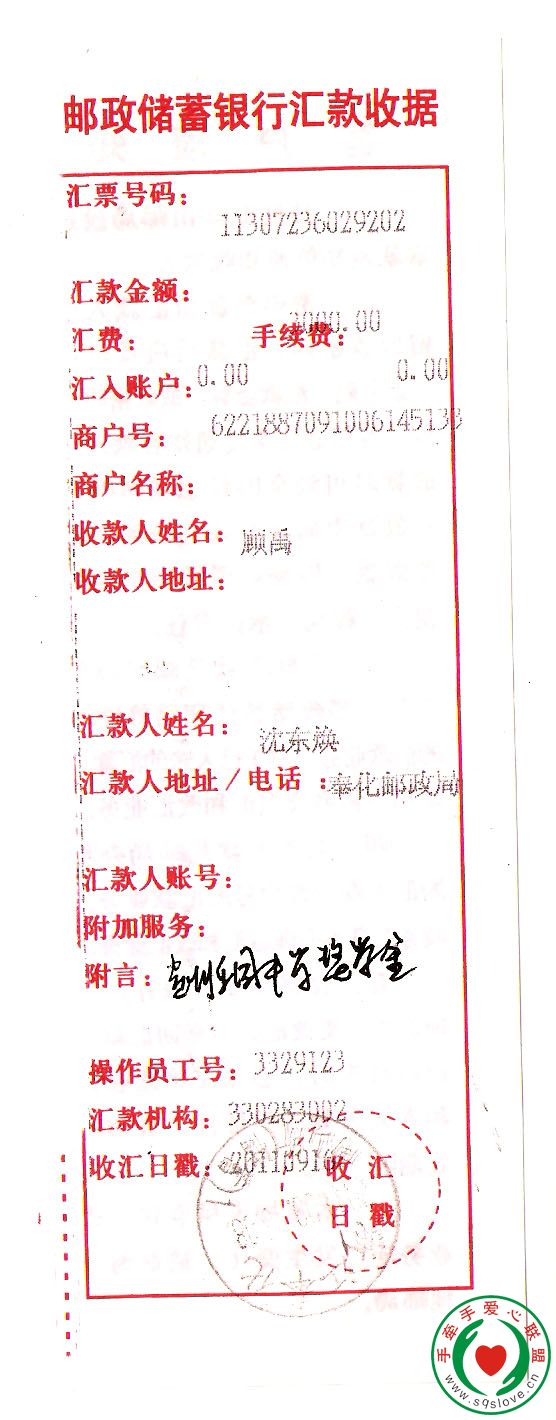 邮政储蓄银行汇款收据
汇票号码：
11307236029202
汇款金额：
3000.00
汇费： 手续费：
0.00 0.00
汇入账户：
6221887091006145133
商户号：
商户名称：
收款人姓名： 顾禹
收款人地址：
汇款人姓名： 沈东焕
汇款人地址/电话： 奉化邮政局
汇款人账号：
附加服务：
附言： 中学奖学金
操作员工号： 3329123
汇款机构： 330283002
收汇日戳： 20110910
收 汇
日 戳
手牵手爱心联盟
www.sqslove.cn